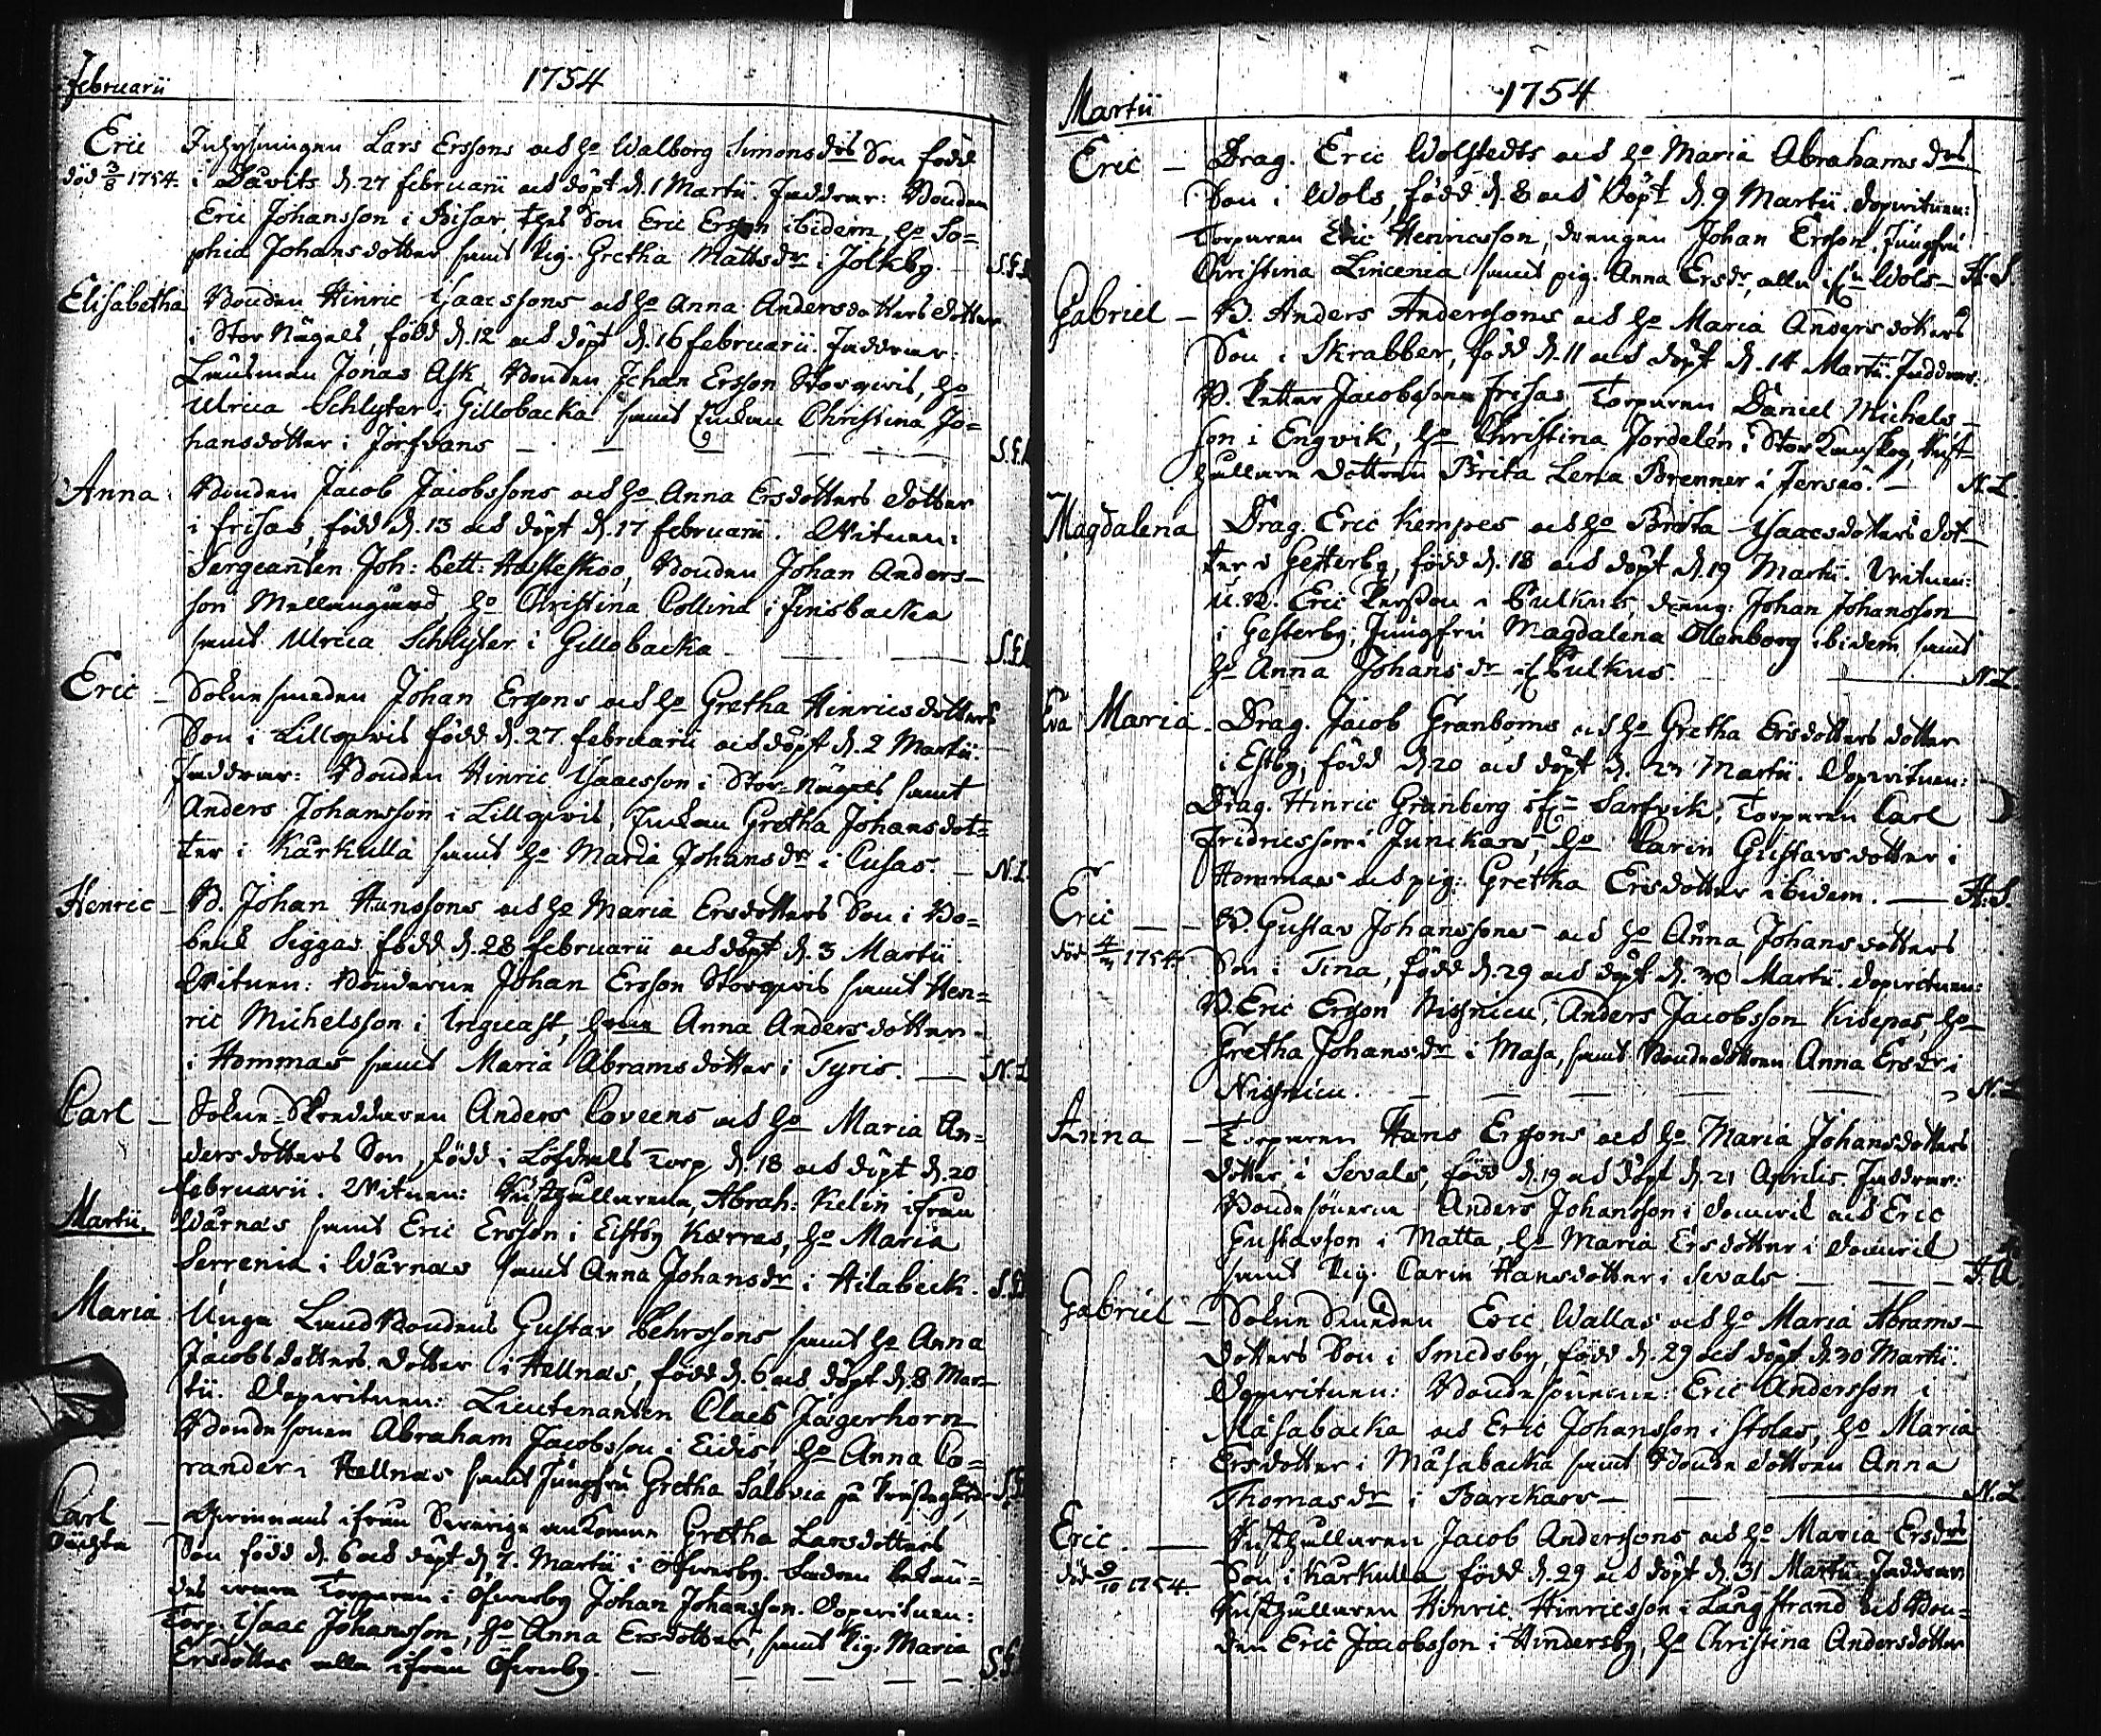 Februarii 1754
Eric Inhysningen Lars Erssons och ho Walborg Simonsdrs Son född
död 3/8 1754. i Davits d. 27 februarii och döpt d. 1 Martii. Faddrar: Bonden
Eric Johansson i Bisar, thes Son Eric Ersson ibidem, ho So=
phia Johansdotter samt Pig. Gretha Mattsdr i Jolkby. S.G.
Elisabetha Bonden Hinric Isaacssons och ho Anna Andersdotters dotter
i Stor Nägels, född d. 12 och döpt d. 16 februarii. Faddrar:
Länsman Jonas Ask, Bonden Johan Ersson Storqwis, ho
Ulrica Schlyter i Gillobacka samt Enkan Christina Jo=
hansdotter i Jorfvans S.G.
Anna Bonden Jacob Jacobssons och ho Anna Ersdotters dotter
i frisas, född d. 13 och döpt d. 17 februarii. Wittnen:
Sergeanten Joh: Pett: Hästesko, Bonden Johan Anders-
son Mellangård, ho Christina Collina i Finsbacka
samt Ulrica Schlyter i Gillobacka S.G.
Eric Sokne smeden Johan Erssons och ho Gretha Hinricsdotters
Son i Lillqwis född d. 27 februarii och döpt d. 2 Martii.
Faddrar: Bonden Hinric Isaacsson i Stor-Nägels samt
Anders Johansson i Lillqwis, Enkan Gretha Johansdot=
ter i Karkulla samt ho Maria Johansdr i Cusas. N.L.
Henric B. Johan Hanssons och ho Maria Ersdotters Son i Bo=
beck Siggas född d. 28 februarii och döpt d. 3 Martii.
Wittnen: Bönderne Johan Ersson Storqwis samt Hen=
ric Michelsson i Ingvast, hust. Anna Andersdotter
i Hommas samt Maria Abramsdotter i Tyris. N.L.
Carl Sokne-Skreddaren Anders Coveens och ho Maria An=
dersdotters Son, född i Löfdals Torp d. 18 och döpt d. 20
februarii. Wittnen: Rusthållarena, Abrah: Kelin ifrån
Martii. Wårnäs samt Eric Ersson i Estby Karras, ho Maria
Serrenia i Wårnäs samt Anna Johansdr i Hilabeck. S.G.
Maria Unga Landbondens Gustav Pehrssons samt ho Anna
Jacobsdotters dotter i Hellnas, född d. 6 och döpt d. 8 Mar-
tii. Dopwittnen: Lieutenanten Claes Jägerhorn
Bondesonen Abraham Jacobsson i Eidis, ho Anna Co=
rander i Hellnas samt Jungfru Gretha Salovia på Prästegården S.G.
Carl Qwinnans ifrån Swerige ankomne Gretha Larsdotters
oächta Son född d. 6 och döpt d. 7 Martii i Öfwerby. Fadren bekän=
des wara Torparen i Öfwerby Johan Johansson. Dopwittnen:
Torp. Isaac Johansson, ho Anna Ersdotter, samt Pig. Maria
Ersdotter alla ifrån Öfwerby. S.G.
Martii 1754
Eric Drag. Eric Wolstedts och ho Maria Abrahams drs
Son i Wols, född d. 8 och döpt d. 9 Martii. Dopwittnen:
Torparen Eric Henricsson, drengen Johan Ersson, Jungfru
Christina Lincenia samt pig. Anna Ersdr, alla ifrn Wols H.S.
Gabriel B. Anders Anderssons och ho Maria Andersdotters
Son i Skrabber, född d. 11 och döpt d. 14 Martii. Faddrar:
B. Petter Jacobsson Frisas Torparen Daniel Michels-
son i Engvik, ho Christina Jordelén i Stor Kanskog, Rust=
hållare dottren Brita Lena Brenner i Fersäö. N.L.
Magdalena Drag. Eric Kempes och ho Brita Isaacsdotters dot-
ter i Gesterby, född d. 18 och döpt d. 19 Martii. Wittnen:
U.B. Eric Persson i Pulkus, dräng: Johan Johansson
i Gesterby; Jungfru Magdalena Ollenborg ibidem samt
ho Anna Johansdr i Pulkus. N.L.
Eva Maria Drag. Jacob Granboms och ho Gretha Ersdotters dotter
i Estby, född d. 20 och döpt d. 23 Martii. Dopwittnen:
Drag. Hinric Granberg ifrn Sarfvik, Torparen Carl
Fridricsson i Junckars, ho Karin Gustavsdotter i
Hommas och pig: Gretha Ersdotter ibidem. H.S.
Eric B. Gustav Johanssons och ho Anna Johansdotters
död 4/3 1754. Son i Tina, född d. 29 och döpt d. 30 Martii. Dopwittnen:
B. Eric Ersson Nissnicu, Anders Jacobsson Kidepas, ho
Gretha Johansdr i Masa, samt Bondedottren Anna Ersdr i
Nissnicu. N.L.
Anna Torparen Hans Erssons och ho Maria Johansdotters
dotter i Sevals, född d. 19 och döpt d. 21 Aprilis. Faddrar:
Bondesönerne Anders Johansson i Domwik och Eric
Gustavson i Matta, ho Maria Ersdotter i Domwik
samt Pig. Carin Hansdotter i Sevals
Gabriel Sokne Smeden Eric Wallas och ho Maria Abrams-
dotters Son i Smedsby, född d. 29 och döpt d. 30 Martii.
Dopwittnen: Bondesönerne: Eric Andersson i
Måsabacka och Eric Johansson i Stolas, ho Maria
Ersdotter i Måsabacka samt Bonde dottren Anna
Thomasdr i Barckars N.L.
Eric. Rusthållaren Jacob Anderssons och ho Maria Ersdrs
död 9/10 1754. Son i Karkulla född d. 29 och döpt d. 31 Martii Faddrar
Rusthållaren Hinric Hinricsson i Långstrand och Bon=
den Eric Jacobsson i Hindersby, ho Christina Andersdotter